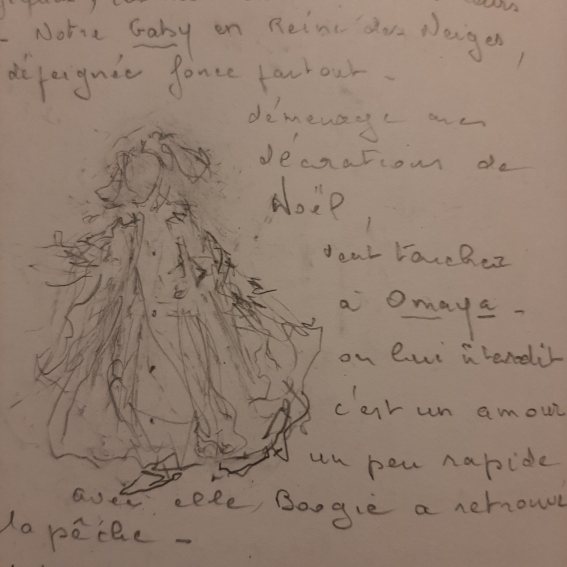 - Notre Gaby en Reine des Neiges,
dépeignée fonce partout -
déménage mes
décorations de
Noël,
veut toucher
à Omaya -
on lui interdit
c'est un amour
un peu rapide
avec elle, Boogie a retrouvé
la pêche -